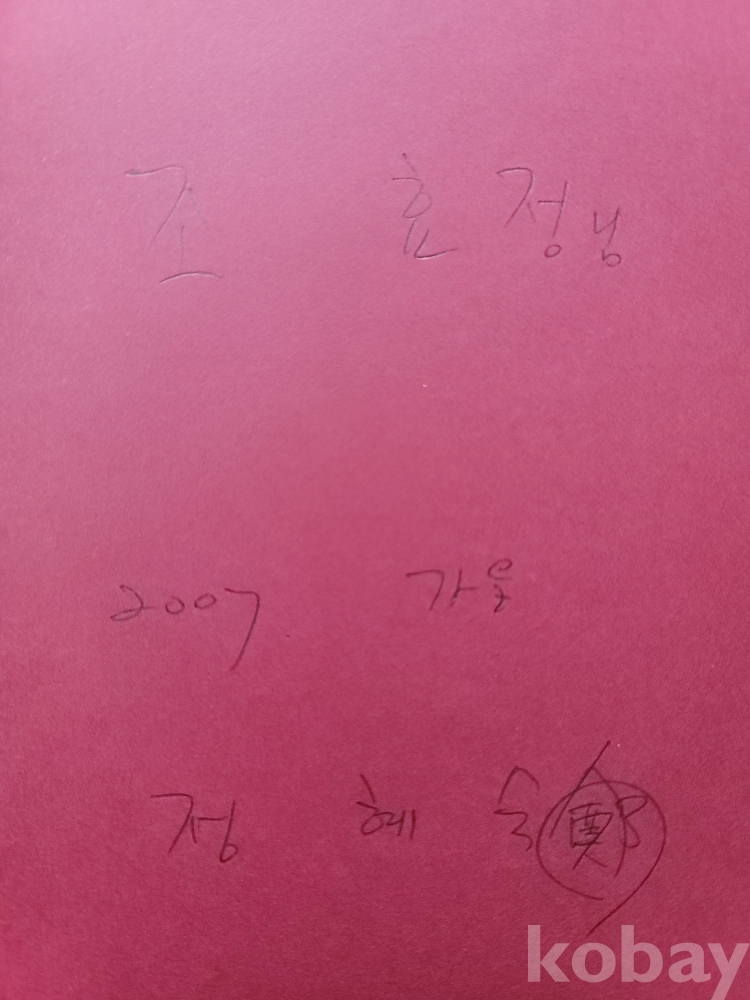 조 효정님
2007 가을
정 혜 숙 鄭
kobay